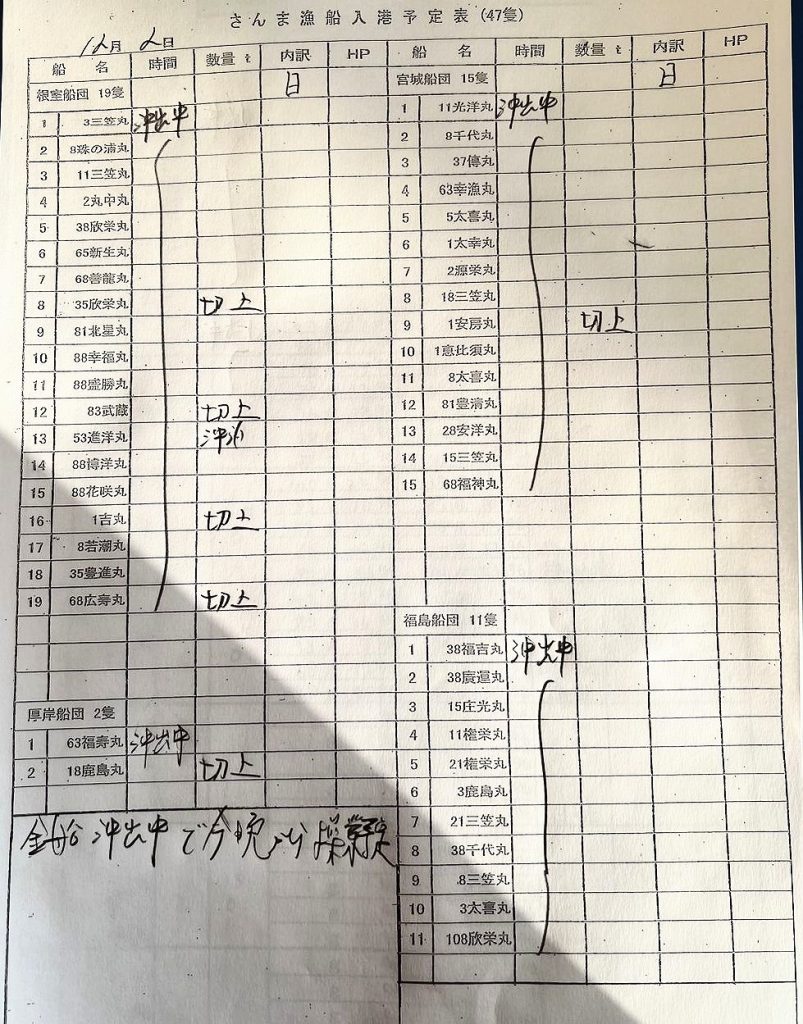 さんま漁船入港予定表 (47隻)
12月 2日
船 名 時間 数量 t 内訳 HP
根室船団 19隻 日
1 3三笠丸 沖出中
2 8珠の浦丸
3 11三笠丸
4 2丸中丸
5 38欣栄丸
6 65新生丸
7 68善龍丸
8 35欣栄丸 切上
9 81北星丸
10 88幸福丸
11 88盛勝丸
12 83武蔵 切上
13 53進洋丸 沖泊
14 88博洋丸
15 88花咲丸
16 1吉丸 切上
17 8若潮丸
18 35豊進丸
19 68広寿丸 切上
厚岸船団 2隻
1 63福寿丸 沖出中
2 18鹿島丸 切上
全船 沖出中で今晩から操業予定
船 名 時間 数量 t 内訳 HP
宮城船団 15隻 日
1 11光洋丸 沖出中
2 8千代丸
3 37傳丸
4 63幸漁丸
5 5太喜丸
6 1太幸丸
7 2源栄丸
8 18三笠丸
9 1安房丸 切上
10 1恵比須丸
11 8太喜丸
12 81豊清丸
13 28安洋丸
14 15三笠丸
15 68福神丸
福島船団 11隻
1 38福吉丸 沖出中
2 38廣運丸
3 15庄光丸
4 11権栄丸
5 21権栄丸
6 3鹿島丸
7 21三笠丸
8 38千代丸
9 8三笠丸
10 3太喜丸
11 108欣栄丸